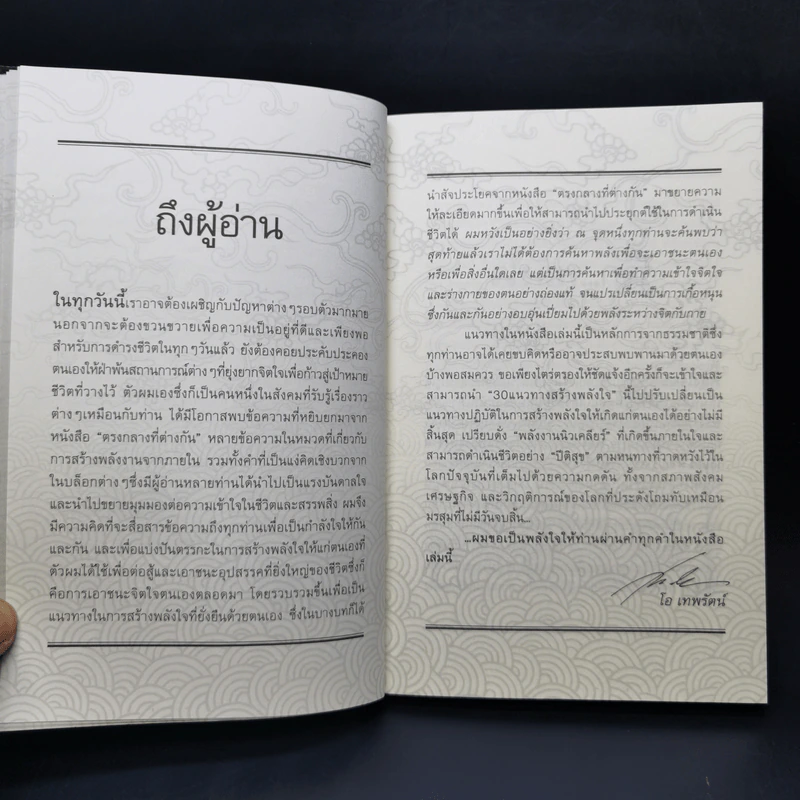 ถึงผู้อ่าน
ในทุกวันนี้เราอาจต้องเผชิญกับปัญหาต่างๆรอบตัวมากมาย
นอกจากจะต้องขวนขวายเพื่อความเป็นอยู่ที่ดีและเพียงพอ
สำหรับการดำรงชีวิตในทุกๆวันแล้ว ยังต้องคอยประคับประคอง
ตนเองให้ฝ่าพ้นสถานการณ์ต่างๆที่ยุ่งยากจิตใจเพื่อก้าวสู่เป้าหมาย
ชีวิตที่วางไว้ ตัวผมเองซึ่งก็เป็นคนหนึ่งในสังคมที่รับรู้เรื่องราว
ต่างๆเหมือนกับท่าน ได้มีโอกาสพบข้อความที่หยิบยกมาจาก
หนังสือ "ตรงกลางที่ต่างกัน" หลายข้อความในหมวดที่เกี่ยวกับ
การสร้างพลังงานจากภายใน รวมทั้งคำที่เป็นแง่คิดเชิงบวกจาก
ในบล็อกต่างๆซึ่งมีผู้อ่านหลายท่านได้นำไปเป็นแรงบันดาลใจ
และนำไปขยายมุมมองต่อความเข้าใจในชีวิตและสรรพสิ่ง ผมจึง
มีความคิดที่จะสื่อสารข้อความถึงทุกท่านเพื่อเป็นกำลังใจให้กัน
และกัน และเพื่อแบ่งปันตรรกะในการสร้างพลังใจให้แก่ตนเองที่
ตัวผมได้ใช้เพื่อต่อสู้และเอาชนะอุปสรรคที่ยิ่งใหญ่ของชีวิตซึ่งก็
คือการเอาชนะจิตใจตนเองตลอดมา โดยรวบรวมขึ้นเพื่อเป็น
แนวทางในการสร้างพลังใจที่ยั่งยืนด้วยตนเอง ซึ่งในบางบทก็ได้
นำสัจประโยคจากหนังสือ "ตรงกลางที่ต่างกัน" มาขยายความ
ให้ละเอียดมากขึ้นเพื่อให้สามารถนำไปประยุกต์ใช้ในการดำเนิน
ชีวิตได้ ผมหวังเป็นอย่างยิ่งว่า ณ จุดหนึ่งทุกท่านจะค้นพบว่า
สุดท้ายแล้วเราไม่ได้ต้องการค้นหาพลังเพื่อจะเอาชนะตนเอง
หรือเพื่อสิ่งอื่นใดเลย แต่เป็นการค้นหาเพื่อทำความเข้าใจจิตใจ
และร่างกายของตนอย่างถ่องแท้ จนแปรเปลี่ยนเป็นการเกื้อหนุน
ซึ่งกันและกันอย่างอบอุ่นเปี่ยมไปด้วยพลังระหว่างจิตกับกาย
แนวทางในหนังสือเล่มนี้เป็นหลักการจากธรรมชาติซึ่ง
ทุกท่านอาจได้เคยขบคิดหรืออาจประสบพบพานมาด้วยตนเอง
บ้างพอสมควร ขอเพียงไตร่ตรองให้ชัดแจ้งอีกครั้งก็จะเข้าใจและ
สามารถนำ "30แนวทางสร้างพลังใจ" นี้ไปปรับเปลี่ยนเป็น
แนวทางปฏิบัติในการสร้างพลังใจให้เกิดแก่ตนเองได้อย่างไม่มี
สิ้นสุด เปรียบดั่ง "พลังงานนิวเคลียร์" ที่เกิดขึ้นภายในใจและ
สามารถดำเนินชีวิตอย่าง "ปีติสุข" ตามหนทางที่วาดหวังไว้ใน
โลกปัจจุบันที่เต็มไปด้วยความกดดัน ทั้งจากสภาพสังคม
เศรษฐกิจ และวิกฤติการณ์ของโลกที่ประดังโถมทับเหมือน
มรสุมที่ไม่มีวันจบสิ้น...
...ผมขอเป็นพลังใจให้ท่านผ่านคำทุกคำในหนังสือ
เล่มนี้
โอ เทพรัตน์